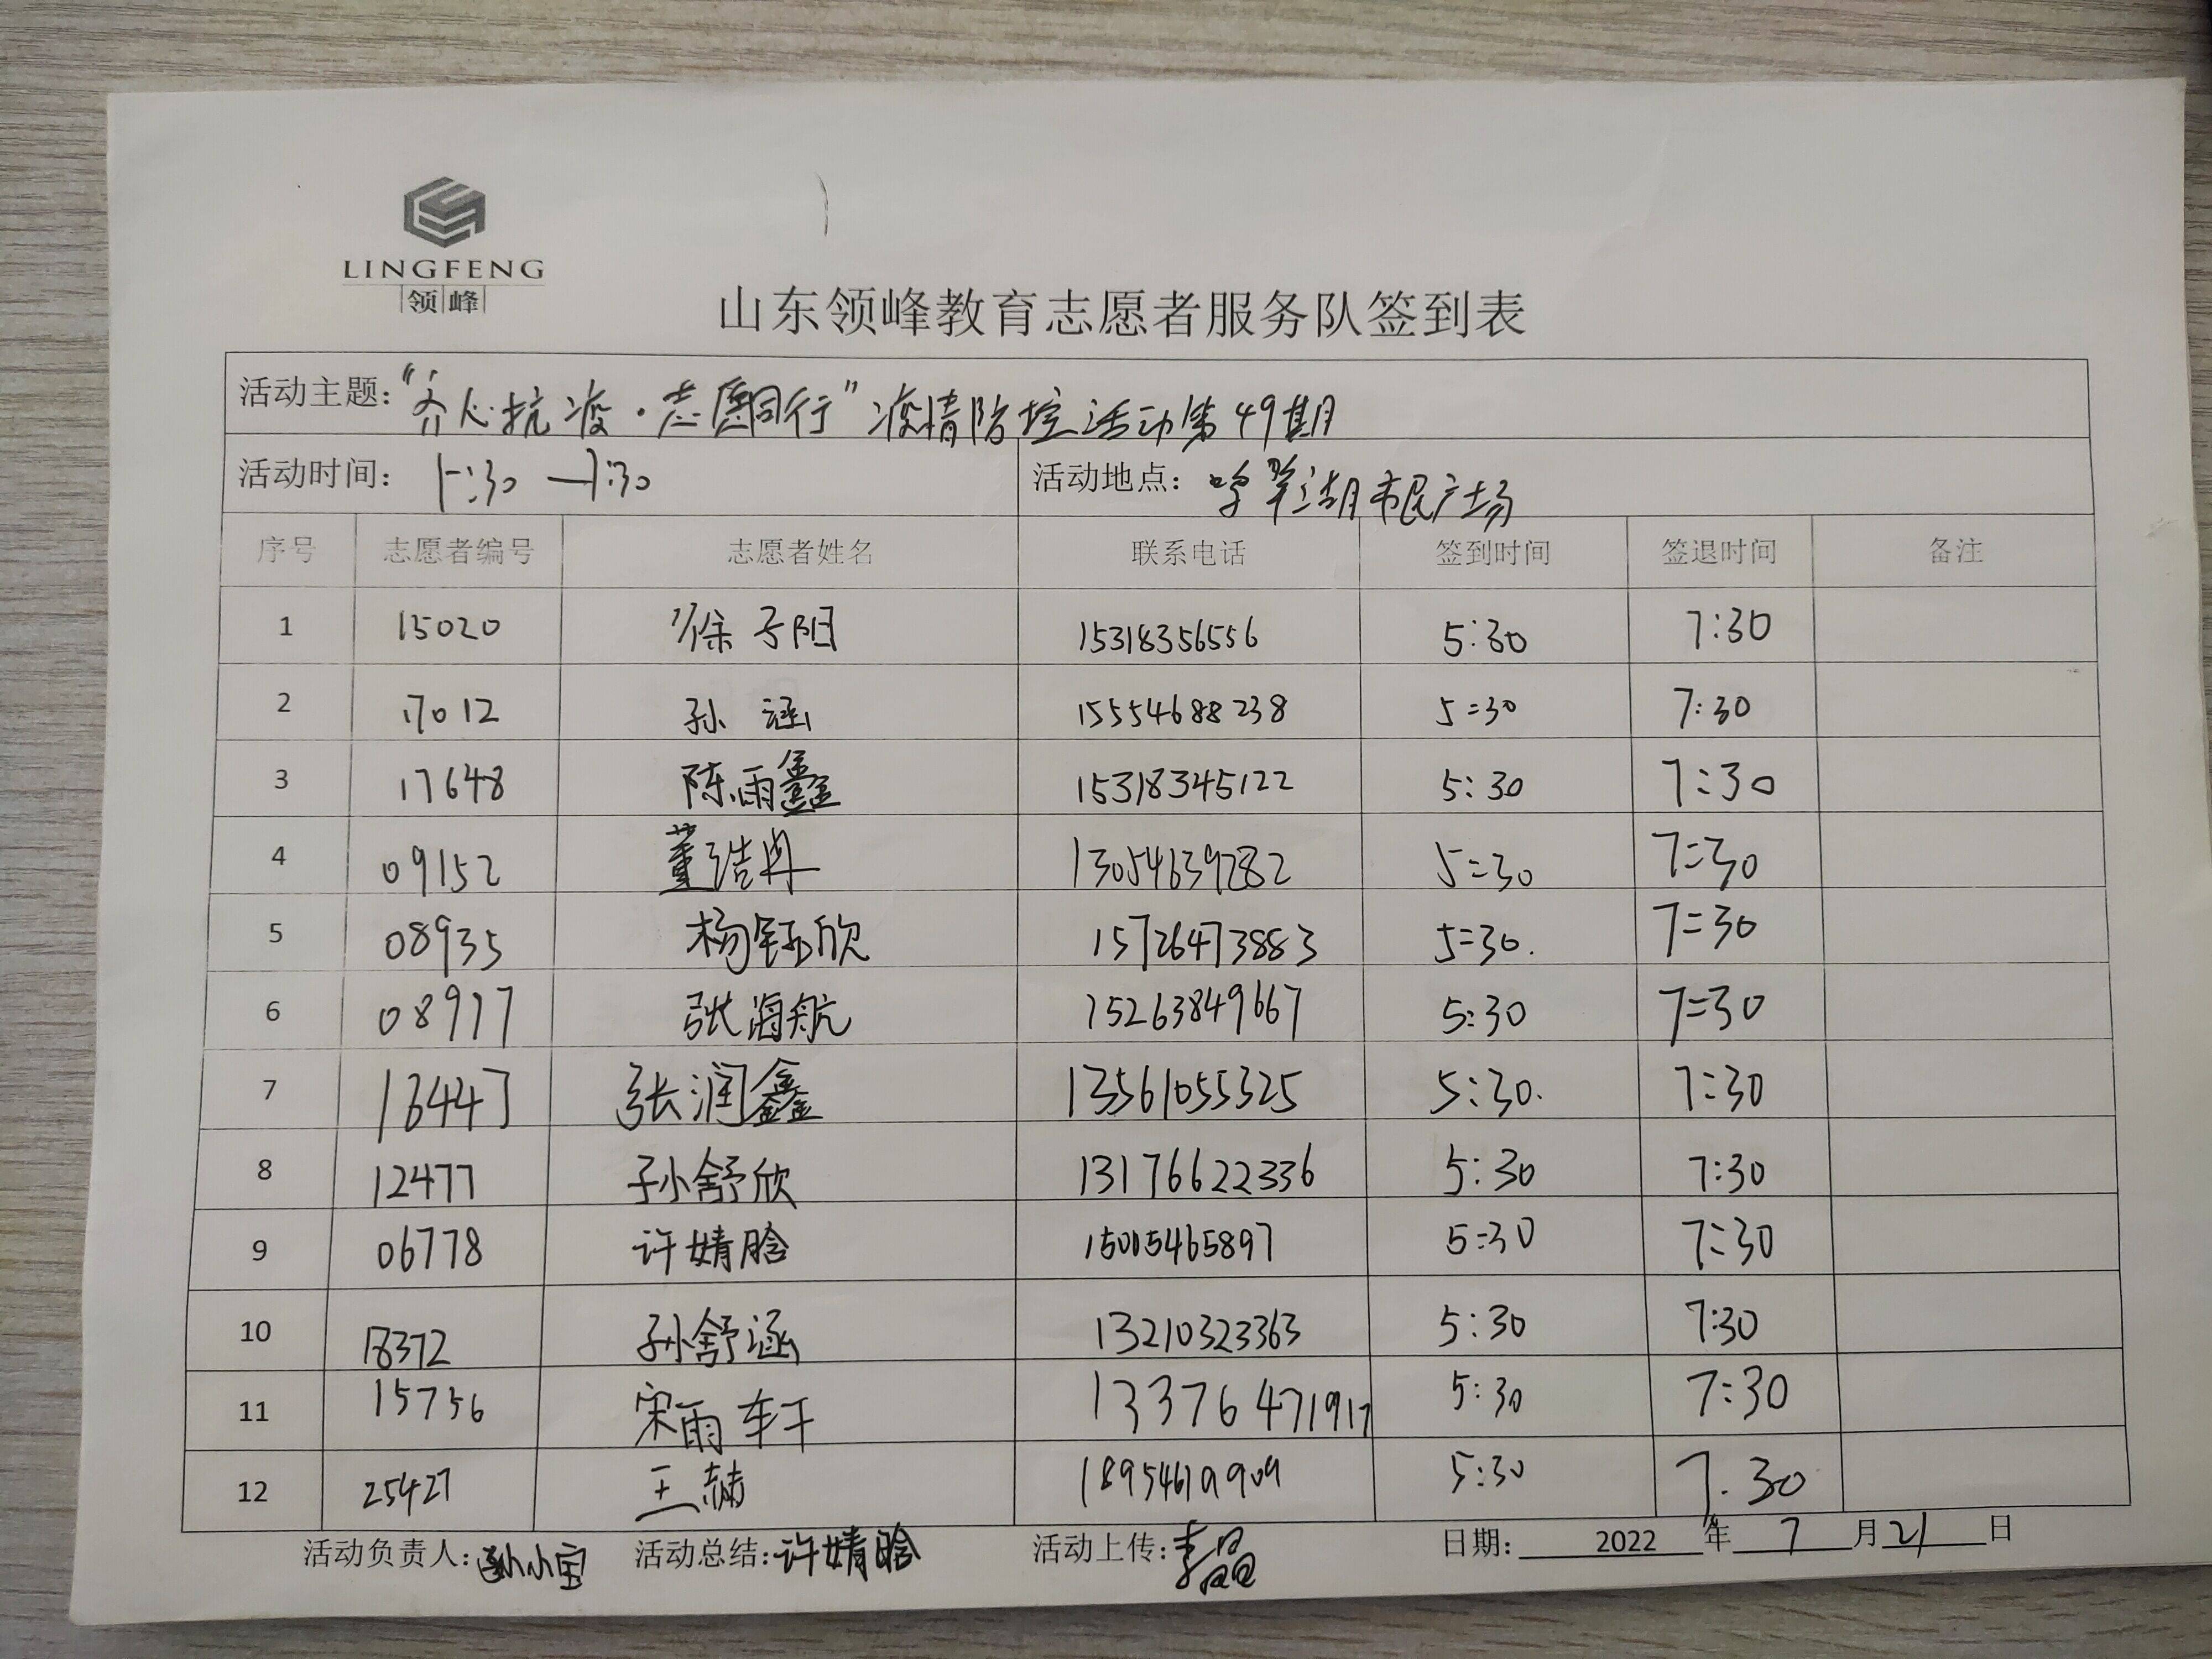 LINGFENG
领峰
山东领峰教育志愿者服务队签到表
活动主题：“齐心抗疫·志愿同行”疫情防控活动第49期
活动时间： 5:30 — 7:30 活动地点： 翠湖市民广场
序号 志愿者编号 志愿者姓名 联系电话 签到时间 签退时间 备注
1 15020 徐子阳 15318356556 5:30 7:30
2 17012 孙涵 15554688238 5:30 7:30
3 17648 陈雨鑫 15318345122 5:30 7:30
4 09152 董浩冉 13054639282 5:30 7:30
5 08935 杨钰欣 15726473883 5:30. 7:30
6 08917 张海航 15263849667 5:30 7:30
7 13447 张润鑫 13561055325 5:30. 7:30
8 12477 孙舒欣 13176622336 5:30 7:30
9 06778 许婧晗 15005465897 5:30 7:30
10 18372 孙舒涵 13210323363 5:30 7:30
11 15756 宋雨轩 13376471917 5:30 7:30
12 25427 王赫 5:30 7.30
活动负责人：孙小宝 活动总结：许婧晗 活动上传：李晶 日期： 2022 年 7 月 21 日